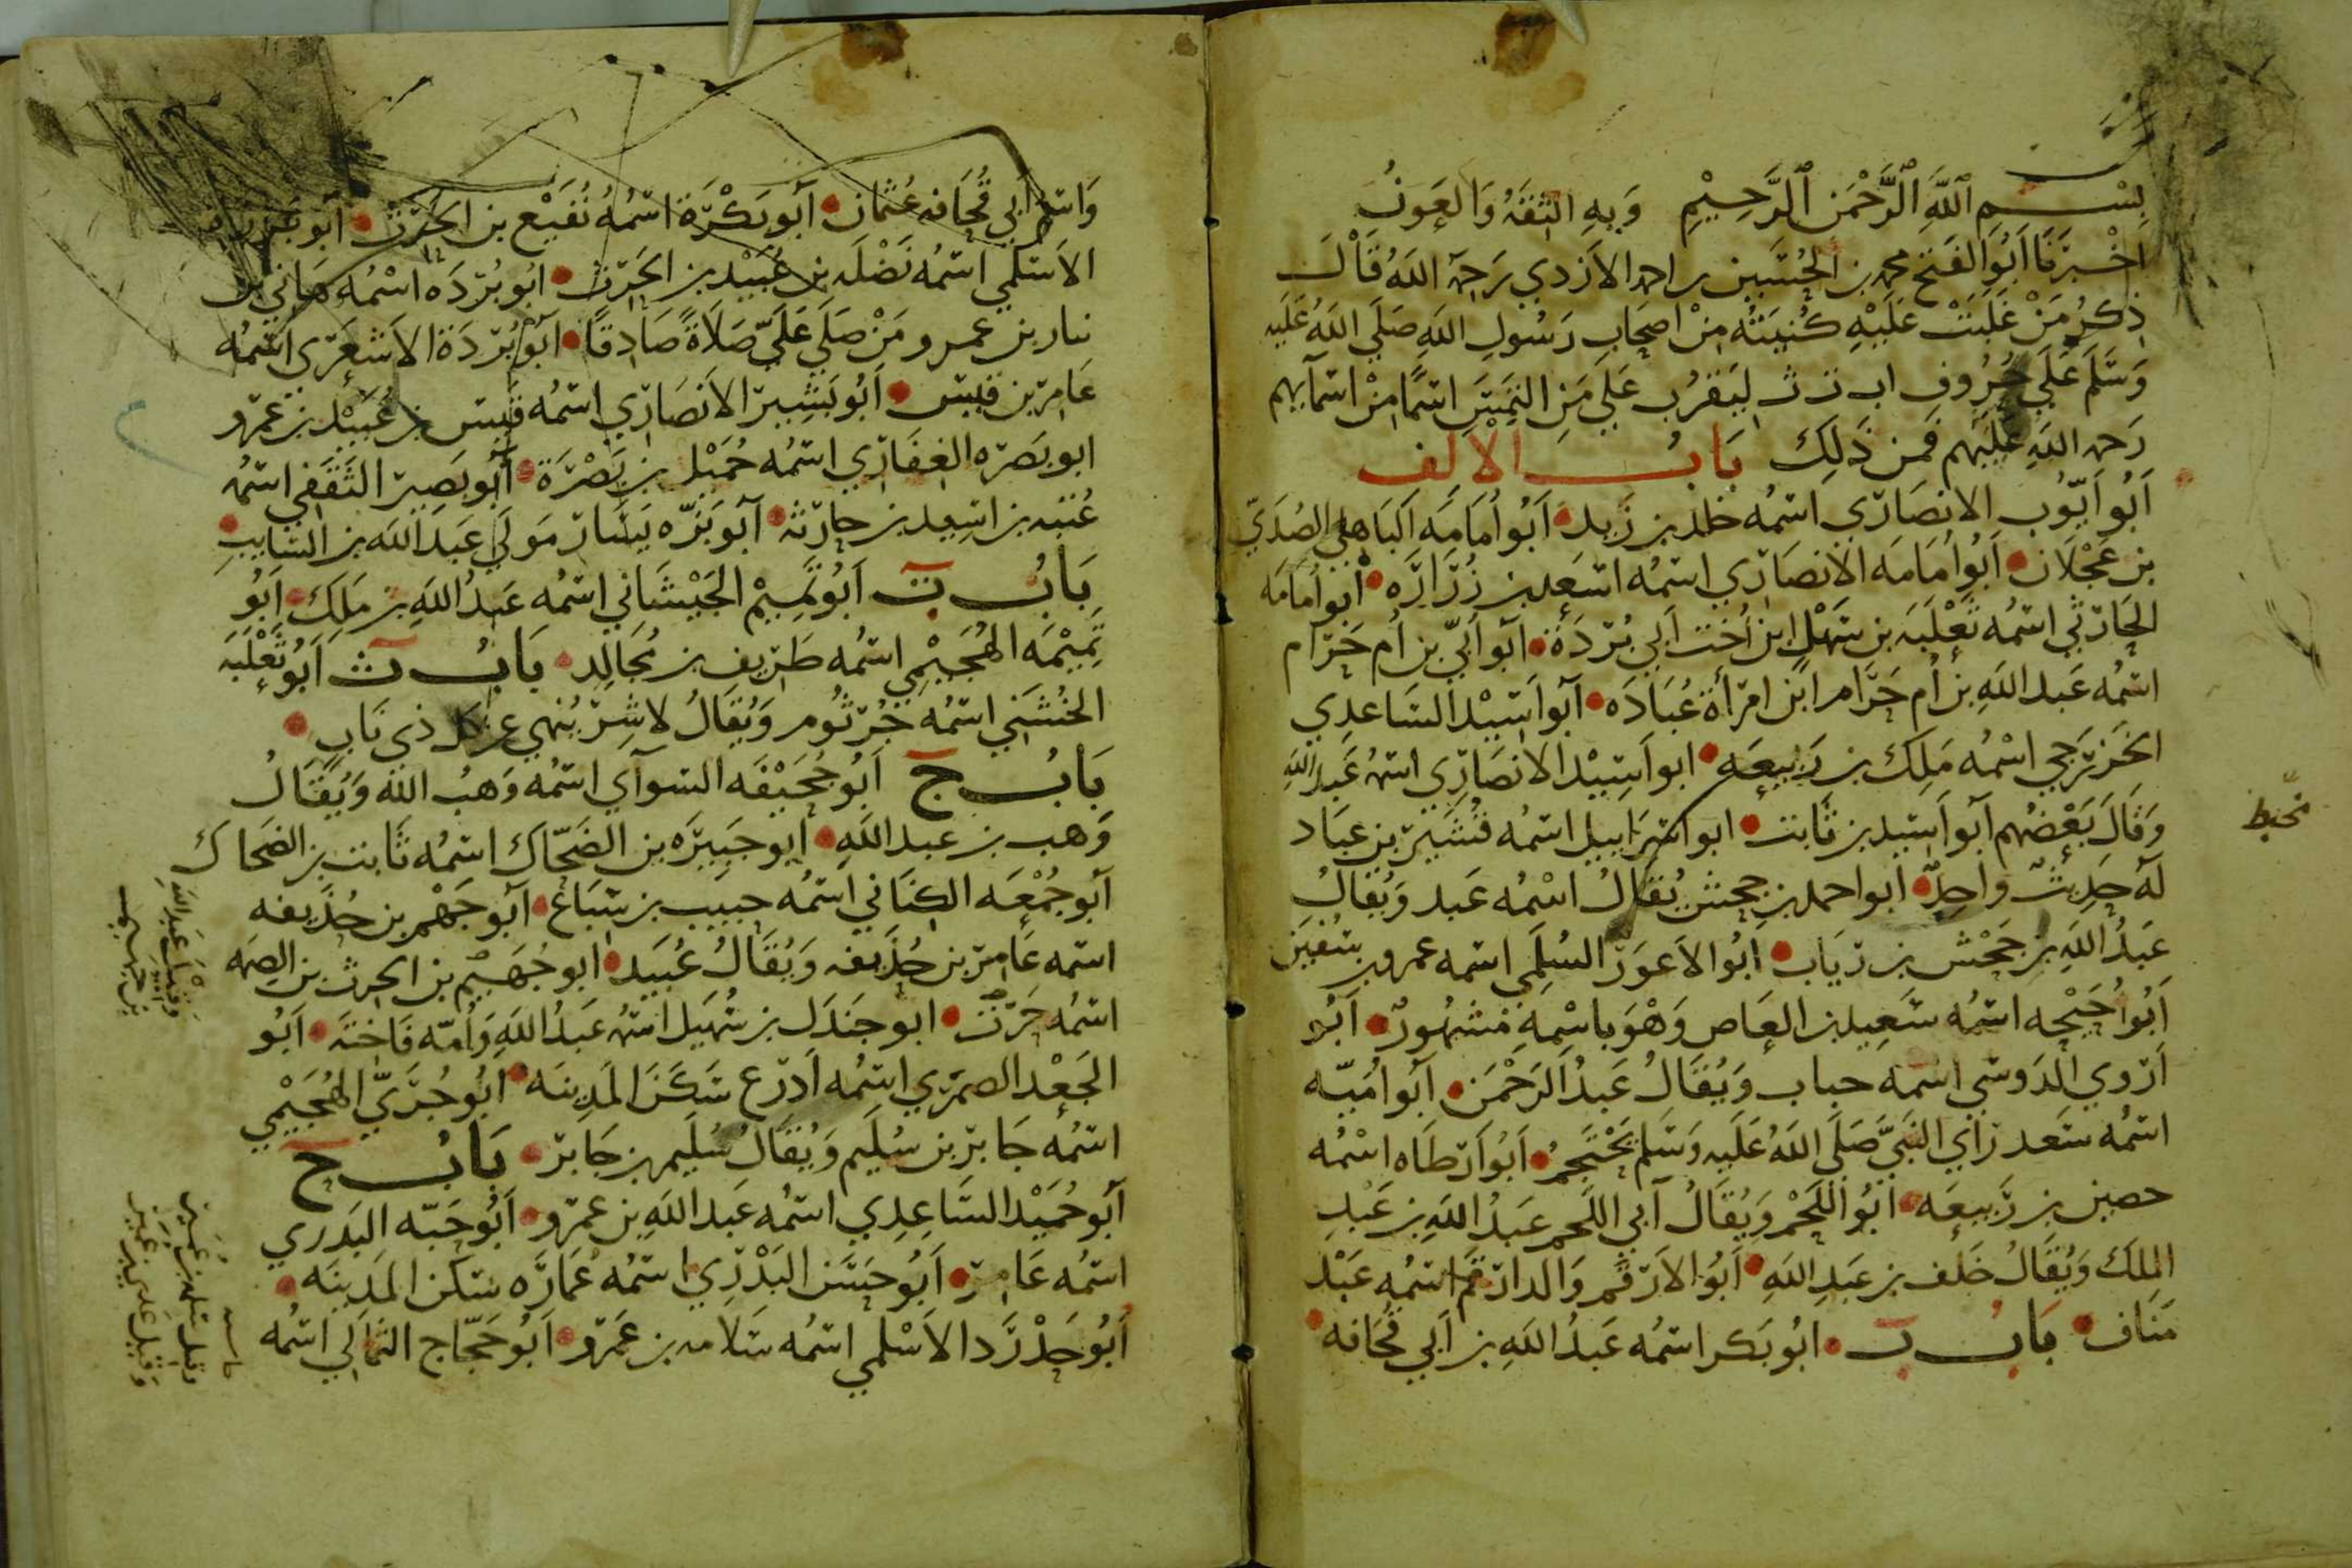 بِسْمِ اللَّهِ الرَّحْمَنِ الرَّحِيْمِ وَبِهِ الثِّقَةُ وَالعَونُ
اخْبَرَنَا اَبُو الفَتْح محمد بن الحُسَين بن احمد الازدي رَحِمَهُ اللَّهُ قَالَ
ذِكرُ مَنْ غَلَبَتْ عَلَيْهِ كُنيَتُهُ مِنْ اصحَابِ رَسُولِ اللَّهِ صَلَى اللَّهُ عَلَيه
وَسَلَمَ عَلَى حُرُوفِ ا ب ت ث ليَقرُب عَلَى مَنِ التَمَسَ اسمًا مِنْ اسمآيهم
رَحمة اللَّهِ عَلَيهم فَمن ذَلِكَ بَابُ الالف
اَبُو اَيّوُب الانصَارِي اسمُه خلد بن زَيد اَبُو اُمَامَه البَاهلي الصُدَيّ
بن عَجْلَان اَبُو اُمَامَه الانصَارِي اسمُه اسعَد بن زُرَارَه أبو اُمَامَه
الحَارثي اسمُه ثَعْلَبَه بن سَهْل ابن اُخت اَبي بُرْدَة اَبو اُبَيّ بن اُم حَرَام
اسمُه عَبد اللَّهِ بن اُم حَرَام ابن امرَأة عُبَادَه اَبو اسَيْد السَاعدي
الخَزرَجي اسْمُه مَلِك بن رَبيعَه ابو اسَيْد الانصَارِي اسمُه عَبد الله
وَقَالَ بَعْضُهم اَبو اَسيد بن ثَابت ابو اسرَاييل اسمُه قُشَير بن عبَاد
لَهُ حَدِيثٌ واحِدٌ ابو احمد بن جحش يُقَالُ اسْمُه عَبد وَيُقَالُ
عَبدُ اللَّهِ بن جَحْش بن ريَاب اَبُو الاَعوَر السُلَمي اسمه عمرو بن سُفيَن
اَبُو اُحَيْحه اسمُه سَعِيد بن العَاص وَهْوَ باسْمِهِ مَشهُورٌ اَبُو
اَرْوي الدَوسي اسمه حباب وَيُقَالُ عَبدُ الرَحْمَن اَبو اُمَيّه
اسمُه سَعد رَاي النَبيَّ صَلَى اللَّهُ عَلَيه وَسَلم يَحْتَجِمُ اَبُو اَرطَاه اسْمُه
حصين بن رَبيعَه ابُو اللَحْم وَيُقَالُ آبي اللَحم عَبدُ اللَّهِ بن عَبْدِ
المِلك وَيُقَالُ خَلَف بن عَبدِ اللَّهِ اَبُو الارقَم وَالد ارقَم اسمُه عَبْد
مَنَاف بَابُ ب ابُو بَكر اسمُه عَبدُ اللَّهِ بن اَبي قُحَافَه
مُحيط
وَاسم اَبي قُحَافه عُثمان اَبُو بَكْرَة اسمُهُ نُفَيْع بن الحَرْث اَبو بَرزة
الاسلَمي اسمُه نَضْلَه بن عُبَيْد بن الحَرث ابُو بُرْدَه اسْمُه هَاني بن
نيار بن عمرو مَنْ صَلَى عَلَيّ صَلَاةً صَادِقاً اَبُو بُرْدَة الاشعَرِي اسمُه
عَامِر بن قَيس اَبُو بَشِير الاَنصَارِي اسمُه قَيس بن عُبَيْد بن عمرو
ابو بَصرَه الغِفَارِي اسمُه حُمَيْل بن بَصْرَة اَبو بَصير الثَقَفي اسمُه
عُتبَه بن اسِيد بن جارية اَبو بَزّه يَسَار مَولَى عَبد اللَّه بن السَايب
بَابُ ت اَبُو تَمِيمْ الجَيْشَاني اسمُه عَبدُ اللَّهِ بن مَلِك اَبُو
تَمِيمَه الهُجَيْمِي اسمُه طَرِيف بن مُجَالِد بَابُ ث اَبُو ثَعْلَبَه
الخُشَني اسمُه جُرثُوم وَيُقَالُ لاشِر نُهي عن كل ذي نَاب
بَابُ ج اَبُو جُحَيْفَه السوآي اسمُه وَهبُ اللَّه وَيُقَالُ
وَهب بن عبد اللَّهِ ابو جَبيرَه بن الضَحّاك اسمُه ثَابت بن الضَحاك
اَبو جُمْعَه الكنَاني اسمُه حبيب بن سباع اَبو جَهْم بن حُذَيفه
اسمُه عَامِر بن حُذَيفه وَيُقَالُ عُبَيد ابو جُهَيْم بن الحرث بن الصمَه
اسمُه حَرْث ابو جَندَل بن سُهَيل اسمُه عَبدُ اللَّهِ وَاُمّه فَاخِتَه اَبُو
الجَعْد الضمري اسمُه اَدرَع سَكَنَ المَدِينَه ابُو جُرَيّ الهُجَيْمي
اسمُه جَابر بن سُلَيم وَيُقَالُ سُلَيم بن جَابر بَابُ ح
اَبو حُمَيْد السَاعِدِي اسمُه عَبد اللَّهِ بن عَمرو اَبُو حَبّه البَدرِي
اسمُه عَامِر اَبُو حَسَن البَدْرِي اسمُه عُمَارَه سَكن المَدِينَه
اَبُو حَدْرَد الاَسْلَمي اسمُه سَلامه بن عَمرو اَبُو حَجّاج الثُمالي اسْمُه
وَقيْلَ عَبد اللَّه
بن جهيم